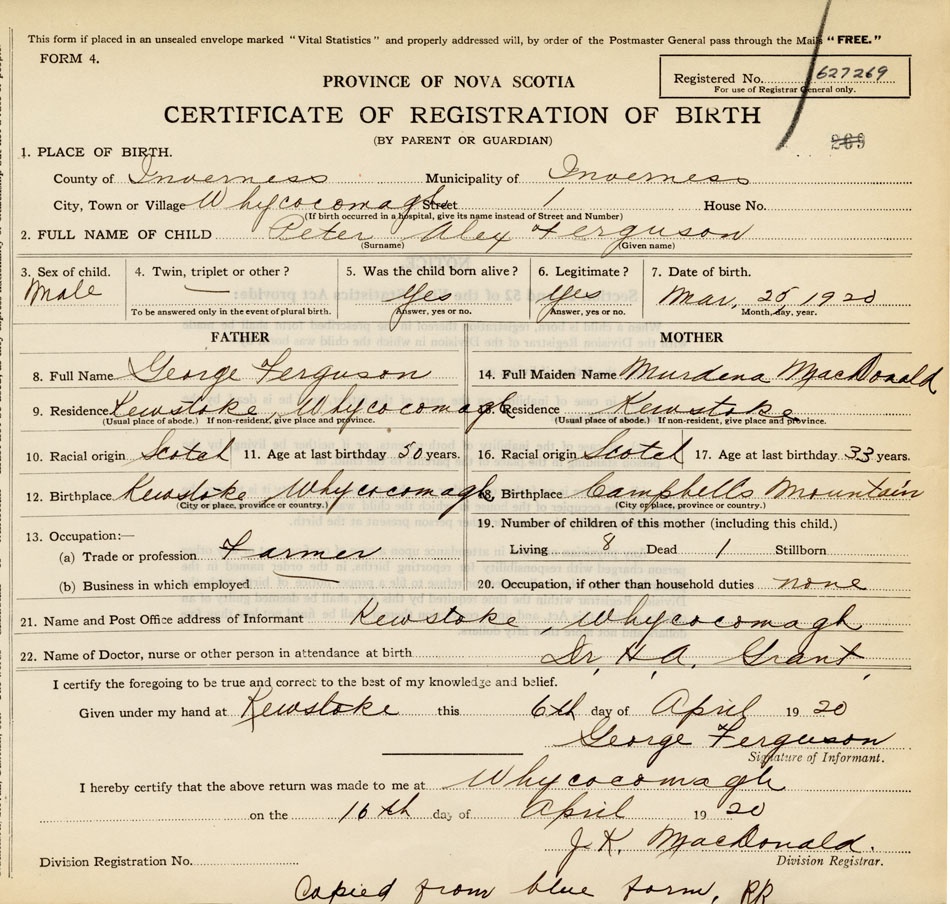 This form if placed in an unsealed envelope marked "Vital Statistics" and properly addressed will, by order of the Postmaster General pass through the Mails "FREE."
FORM 4.
Registered No. 627269
For use of Registrar General only.
PROVINCE OF NOVA SCOTIA
CERTIFICATE OF REGISTRATION OF BIRTH
(BY PARENT OR GUARDIAN)
269
1. PLACE OF BIRTH.
County of Inverness Municipality of Inverness
City, Town or Village Whycocomagh Street 1 House No.
(If birth occurred in a hospital, give its name instead of Street and Number)
2. FULL NAME OF CHILD Peter Alex Ferguson
(Surname) (Given name)
3. Sex of child. 4. Twin, triplet or other? 5. Was the child born alive? 6. Legitimate? 7. Date of birth.
Male — Yes Yes Mar, 25, 1920
To be answered only in the event of plural birth. Answer, yes or no. Answer, yes or no. Month, day, year.
FATHER MOTHER
8. Full Name George Ferguson 14. Full Maiden Name Murdena MacDonald
9. Residence Kewstoke, Whycocomagh 15. Residence Kewstoke
(Usual place of abode.) If non-resident, give place and province. (Usual place of abode.) If non-resident, give place and province.
10. Racial origin Scotch 11. Age at last birthday 50 years. 16. Racial origin Scotch 17. Age at last birthday 33 years.
12. Birthplace Kewstoke, Whycocomagh 18. Birthplace Campbells Mountain
(City or place, province or country.) (City or place, province or country.)
13. Occupation:— 19. Number of children of this mother (including this child.)
(a) Trade or profession Farmer Living 8 Dead 1 Stillborn
(b) Business in which employed — 20. Occupation, if other than household duties none
21. Name and Post Office address of Informant Kewstoke, Whycocomagh
22. Name of Doctor, nurse or other person in attendance at birth Dr. H. A. Grant
I certify the foregoing to be true and correct to the best of my knowledge and belief.
Given under my hand at Kewstoke this 6th day of April 1920
George Ferguson
Signature of Informant.
I hereby certify that the above return was made to me at Whycocomagh
on the 16th day of April 1920
J. K. MacDonald.
Division Registration No. Division Registrar.
Copied from blue form, RR